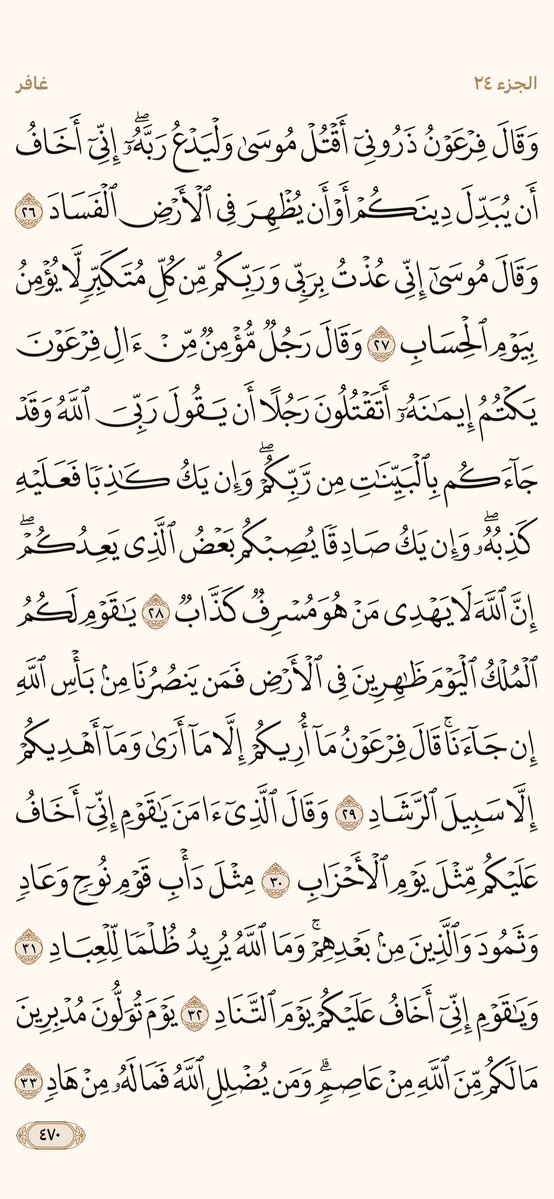 الجزء ٢٤
غافر
وَقَالَ فِرْعَوْنُ ذَرُونِىٓ أَقْتُلْ مُوسَىٰ وَلْيَدْعُ رَبَّهُۥٓۖ إِنِّىٓ أَخَافُ
أَن يُبَدِّلَ دِينَكُمْ أَوْ أَن يُظْهِرَ فِى ٱلْأَرْضِ ٱلْفَسَادَ ٢٦
وَقَالَ مُوسَىٰٓ إِنِّى عُذْتُ بِرَبِّى وَرَبِّكُم مِّن كُلِّ مُتَكَبِّرٍ لَّا يُؤْمِنُ
بِيَوْمِ ٱلْحِسَابِ ٢٧ وَقَالَ رَجُلٌ مُّؤْمِنٌ مِّنْ ءَالِ فِرْعَوْنَ
يَكْتُمُ إِيمَٰنَهُۥٓ أَتَقْتُلُونَ رَجُلًا أَن يَقُولَ رَبِّىَ ٱللَّهُ وَقَدْ
جَآءَكُم بِٱلْبَيِّنَٰتِ مِن رَّبِّكُمْۖ وَإِن يَكُ كَٰذِبًا فَعَلَيْهِ
كَذِبُهُۥۖ وَإِن يَكُ صَادِقًا يُصِبْكُم بَعْضُ ٱلَّذِى يَعِدُكُمْۖ
إِنَّ ٱللَّهَ لَا يَهْدِى مَنْ هُوَ مُسْرِفٌ كَذَّابٌ ٢٨ يَٰقَوْمِ لَكُمُ
ٱلْمُلْكُ ٱلْيَوْمَ ظَٰهِرِينَ فِى ٱلْأَرْضِ فَمَن يَنصُرُنَا مِنۢ بَأْسِ ٱللَّهِ
إِن جَآءَنَاۚ قَالَ فِرْعَوْنُ مَآ أُرِيكُمْ إِلَّا مَآ أَرَىٰ وَمَآ أَهْدِيكُمْ
إِلَّا سَبِيلَ ٱلرَّشَادِ ٢٩ وَقَالَ ٱلَّذِىٓ ءَامَنَ يَٰقَوْمِ إِنِّىٓ أَخَافُ
عَلَيْكُم مِّثْلَ يَوْمِ ٱلْأَحْزَابِ ٣٠ مِثْلَ دَأْبِ قَوْمِ نُوحٍ وَعَادٍ
وَثَمُودَ وَٱلَّذِينَ مِنۢ بَعْدِهِمْۚ وَمَا ٱللَّهُ يُرِيدُ ظُلْمًا لِّلْعِبَادِ ٣١
وَيَٰقَوْمِ إِنِّىٓ أَخَافُ عَلَيْكُمْ يَوْمَ ٱلتَّنَادِ ٣٢ يَوْمَ تُوَلُّونَ مُدْبِرِينَ
مَا لَكُم مِّنَ ٱللَّهِ مِنْ عَاصِمٍۗ وَمَن يُضْلِلِ ٱللَّهُ فَمَا لَهُۥ مِنْ هَادٍ ٣٣
٤٧٠